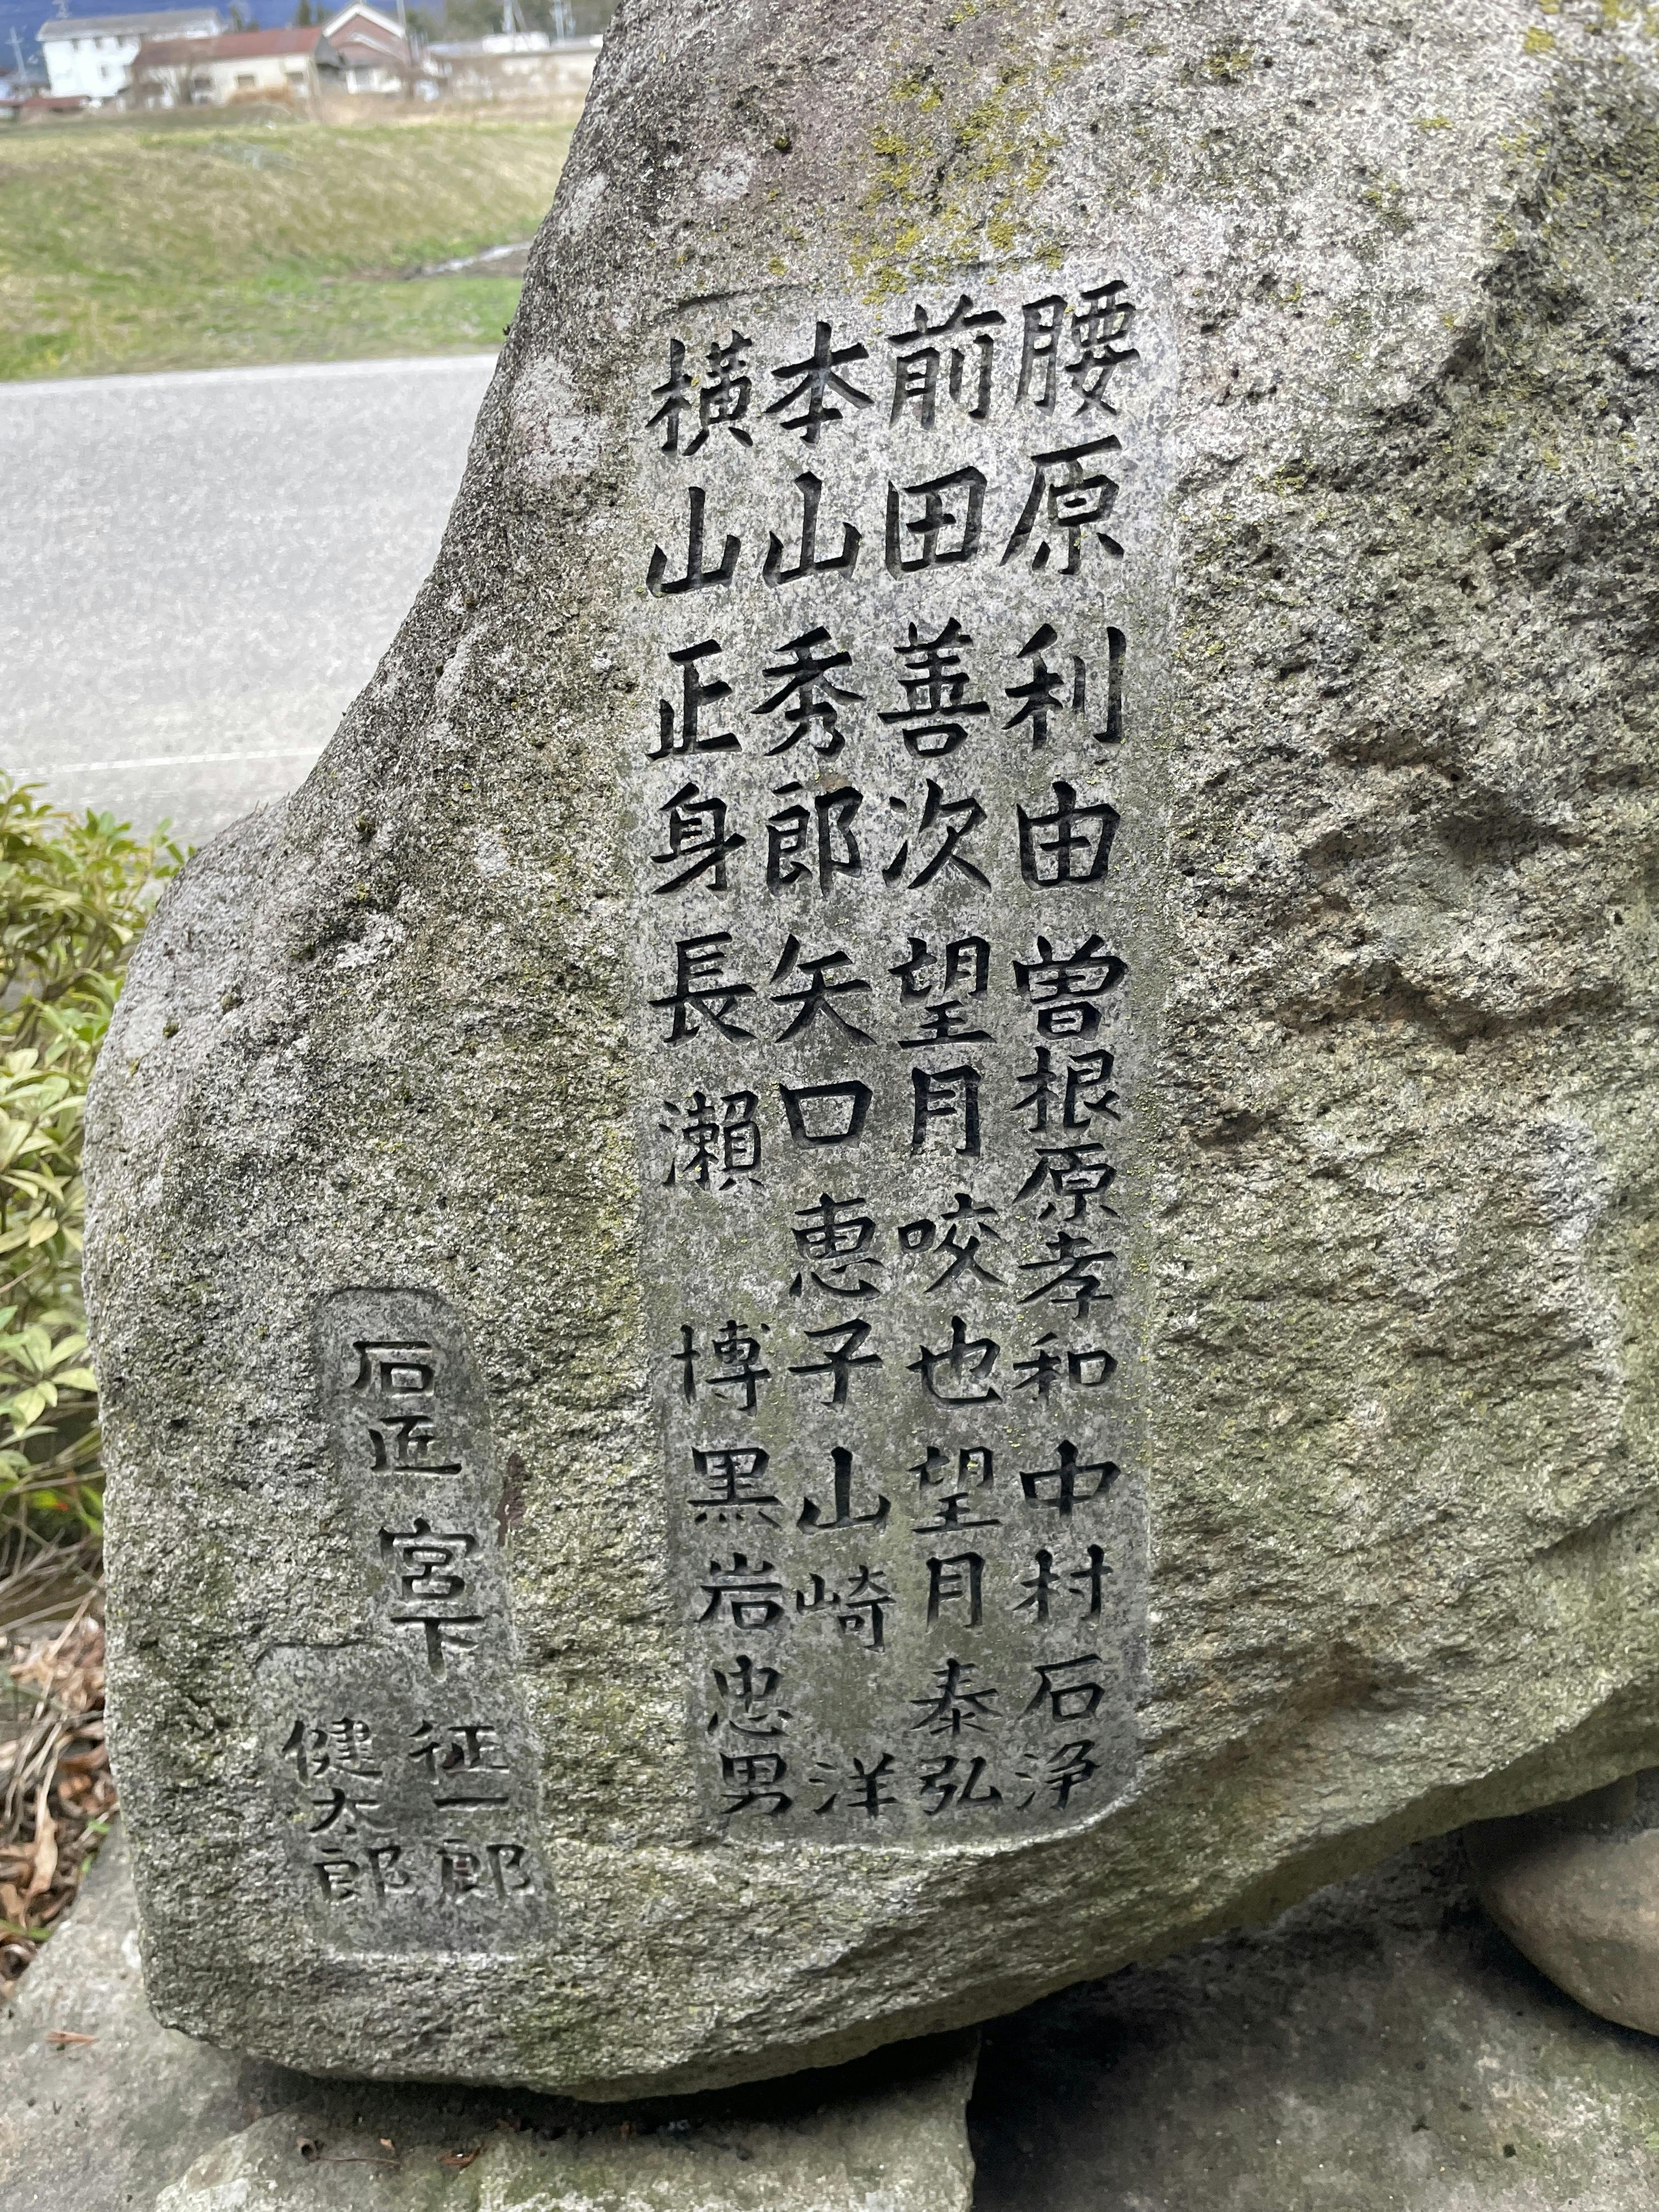 腰原利由 曽根原孝和 中村石浄
前田善次 望月咬也 望月泰弘
本山秀郎 矢口恵子 山崎洋
横山正身 長瀬博 黒岩忠男
石匠 宮下 征一郎
健太郎